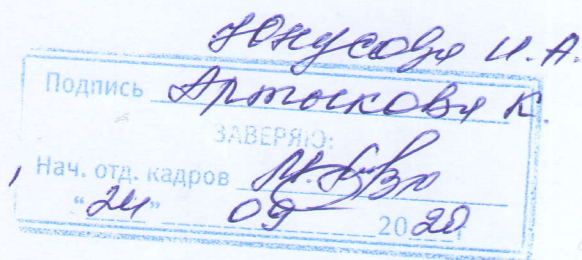 Юнусова И.А.
Подпись Артыкова К.
ЗАВЕРЯЮ:
Нач. отд. кадров
“24” 09 2020